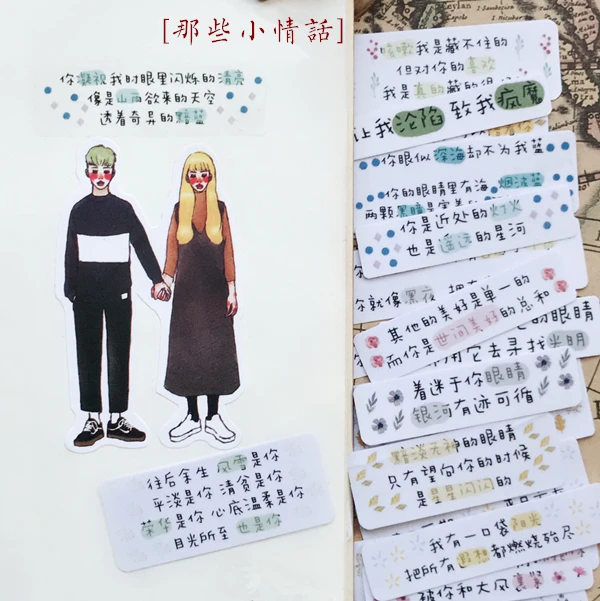 [那些小情話]
你凝视我时眼里闪烁的清亮
像是山雨欲来的天空
透着奇异的黯蓝
往后余生 风雪是你
平淡是你 清贫是你
荣华是你 心底温柔是你
目光所至 也是你
咳嗽我是藏不住的
但对你的喜欢
我是真的藏的很
让我沦陷 致我疯魔
你眼似深海却不为我蓝
你的眼睛里有海 烟波蓝
两颗黑瞳是
你是近处的灯火
也是遥远的星河
你就像黑夜
其他的美好是单一的
而你是世间美好的总和
的眼睛
它去寻找光明
着迷于你眼睛
银河有迹可循
黯淡无神的眼睛
只有望向你的时候
是星星闪闪的
我有一口袋阳光
把所有温和都燃烧殆尽
被你和大风